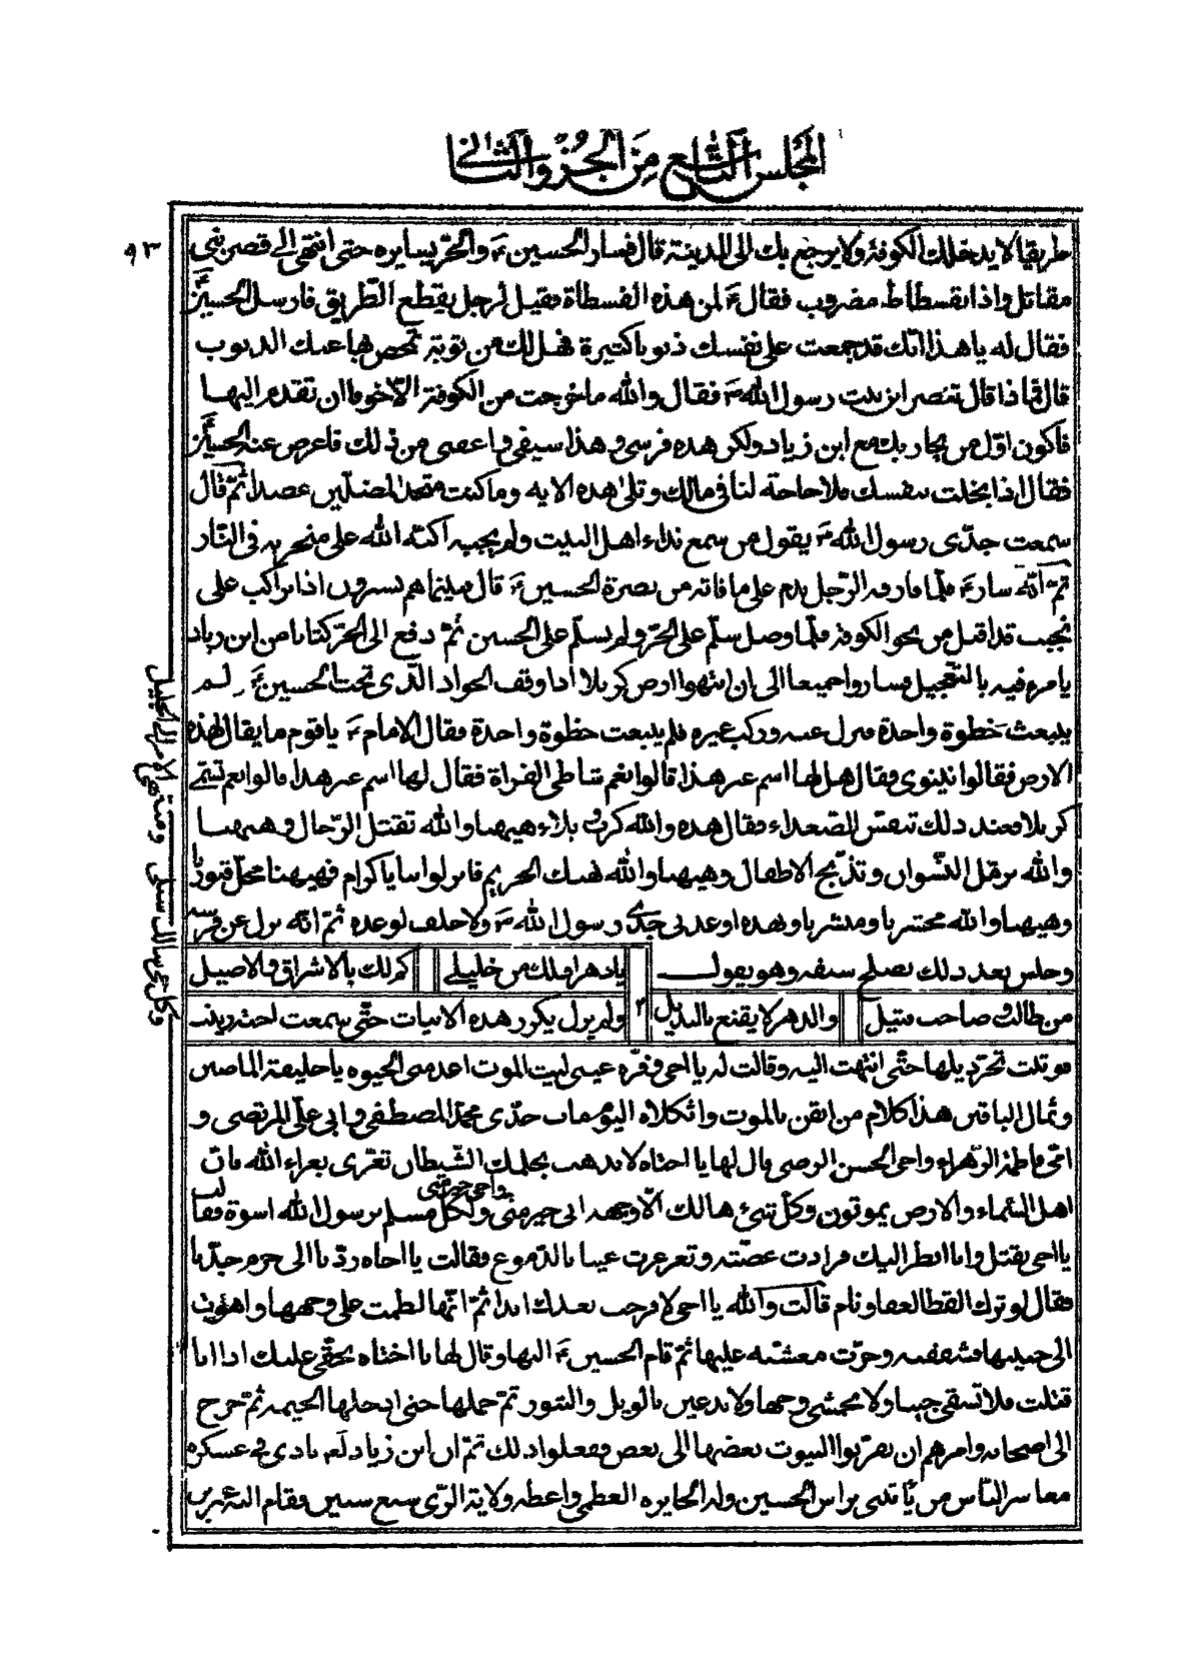 المجلس التاسع من الجزؤ الثاني
٩٣
طريقا لا يدخلك الكوفة ولا يرجع بك الى المدينة قال فسار الحسين ع والحر يسايره حتى انتهى الى قصر بني
مقاتل واذا بفسطاط مضروب فقال ع لمن هذه الفسطاة فقيل لرجل يقطع الطريق فارسل الحسين ع
فقال له يا هذا انك قد جمعت على نفسك ذنوبا كثيرة فهل لك من توبة تمحص بها عنك الذنوب
قال بماذا قال تنصر ابن بنت رسول الله ص فقال والله ما خرجت من الكوفة الا خوفا ان تقدم اليها
فاكون اول من يحاربك مع ابن زياد ولكن هذه فرسي وهذا سيفي واعفني من ذلك فاعرض عنه الحسين ع
فقال اذا بخلت بنفسك فلا حاجة لنا في مالك وتلى هذه الايه وما كنت متخذ المضلين عضدا ثم قال
سمعت جدي رسول الله ص يقول من سمع نداء اهل البيت ولم يجبه اكبه الله على منخريه في النار
ثم انه سار ع فلما فارقه الرجل ندم على ما فاته من نصرة الحسين ع قال فبينما هم يسيرون اذا براكب على
نجيب قد اقبل من نحو الكوفة فلما وصل سلم على الحر ولم يسلم على الحسين ثم دفع الى الحر كتابا من ابن زياد
يامره فيه بالتعجيل فساروا جميعا الى ان انتهوا ارض كربلا اذ اوقف الجواد الذي تحت الحسين ع لم
ينبعث خطوة واحدة فنزل عنه وركب غيره فلم ينبعث خطوة واحدة فقال الامام ع يا قوم ما يقال لهذه
الارض فقالوا نينوى فقال هل لها اسم غير هذا قالوا نعم شاطئ الفراة فقال لها اسم غير هذا قالوا نعم تسمى
كربلا فعند ذلك تنفس الصعداء فقال هذه والله كرب وبلاء هيهنا والله تقتل الرجال وهيهنا
والله ترمل النسوان وتذبح الاطفال وهيهنا والله تهتك الحريم فانزلوا بنا يا كرام فهيهنا محل قبورنا
وهيهنا والله محشرنا ومنشرنا وبهذه اوعدني جدي رسول الله ص ولا خلف لوعده ثم انه نزل عن فرسه
وجلس بعد ذلك يصلح سيفه وهو يقول يا دهر اف لك من خليل كم لك بالاشراق والاصيل
من طالب وصاحب قتيل والدهر لا يقنع بالبديل ٣ ولم يزل يكرر هذه الابيات حتى سمعت اخته زينب
وكل حي سالك سبيلي ومنتهى الامر الى الجليل
فوثبت تجر ذيلها حتى انتهت اليه وقالت له يا اخي وقرة عيني ليت الموت اعدمني الحيوه يا خليفة الماضين
وثمال الباقين هذا كلام من ايقن بالموت واثكلاه اليوم مات جدي محمد المصطفى وابي علي المرتضى و
امي فاطمة الزهراء واخي الحسن الرضي قال لها يا اختاه لا يذهب بحلمك الشيطان تعزي بعزاء الله فان
اهل السماء والارض يموتون وكل شيء هالك الا وجهه ابي خير مني واخي خير مني ولكل مسلم برسول الله اسوة فقالت
يا اخي تقتل وانا انظر اليك فزادت غصته وتغرغرت عيناه بالدموع فقالت يا اخاه ردنا الى حرم جدنا
فقال لو ترك القطا لغفا ونام قالت والله يا اخي لا فرحت بعدك ابدا ثم انها لطمت على وجهها واهوت
الى جيبها فشقته وخرت مغشية عليها ثم قام الحسين ع اليها وقال لها يا اختاه بحقي عليك اذا انا
قتلت فلا تشقي جيبا ولا تخمشي وجها ولا تدعين بالويل والثبور ثم حملها حتى ادخلها الخيمه ثم خرج
الى اصحابه وامرهم ان يقربوا البيوت بعضها الى بعض ففعلوا ذلك ثم ان ابن زياد لعه نادى في عسكره
معاشر الناس من ياتني براس الحسين وله الجايزه العظمى واعطه ولاية الري سبع سنين فقام اليه عمر بن